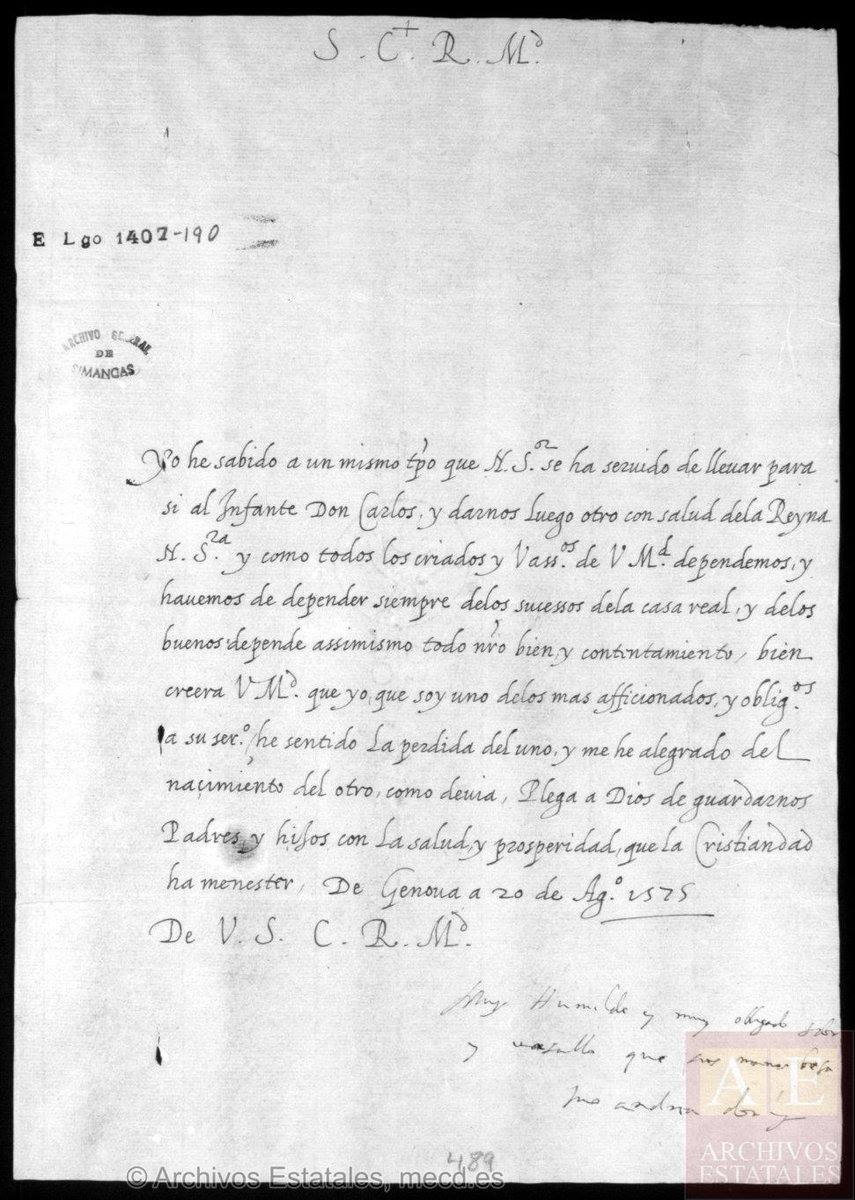 S. C. R. Md.
E Lgo 1407-190
ARCHIVO GENERAL
DE
SIMANCAS
Yo he sabido a un mismo tpo que N. S.or se ha seruido de lleuar para
si al Infante Don Carlos, y darnos luego otro con salud dela Reyna
N. S.ra y como todos los criados y Vass.os de V Md. dependemos, y
hauemos de depender siempre delos sucessos dela casa real, y delos
buenos depende assimismo todo nro bien, y contentamiento, bien
creera V Md. que yo, que soy uno delos mas afficionados, y oblig.os
a su ser.o he sentido la perdida del uno, y me he alegrado del
naçimiento del otro, como deuia, Plega a Dios de guardarnos
Padres, y hijos con la salud, y prosperidad, que la Cristiandad
ha menester, De Genoua a 20 de Ag.o 1575
De V. S. C. R. Md.
Muy Humilde y muy obligado
y vasallo que sus manos besa
andrea
489
AE
ARCHIVOS
ESTATALES
© Archivos Estatales, mecd.es